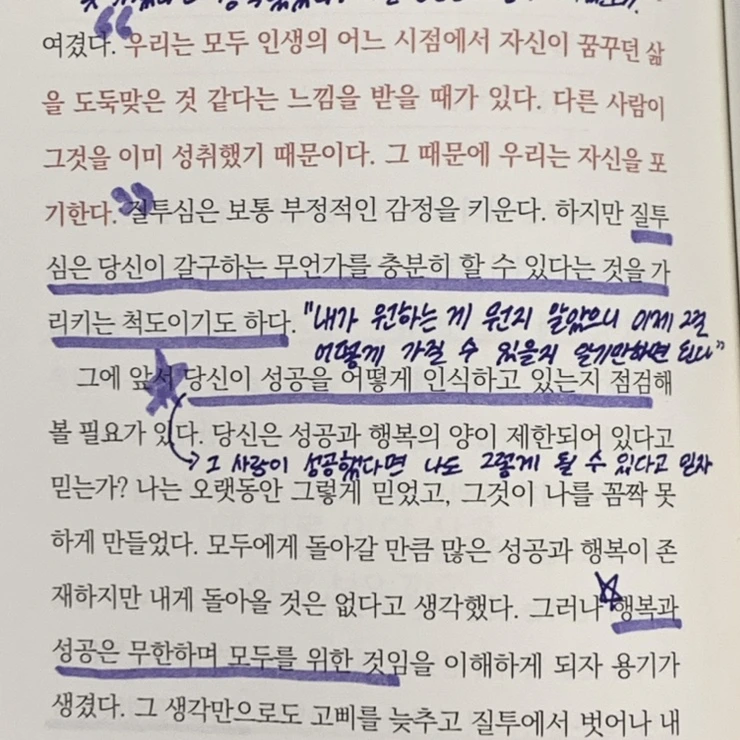 여겼다. “우리는 모두 인생의 어느 시점에서 자신이 꿈꾸던 삶
을 도둑맞은 것 같다는 느낌을 받을 때가 있다. 다른 사람이
그것을 이미 성취했기 때문이다. 그 때문에 우리는 자신을 포
기한다.” 질투심은 보통 부정적인 감정을 키운다. 하지만 질투
심은 당신이 갈구하는 무언가를 충분히 할 수 있다는 것을 가
리키는 척도이기도 하다. "내가 원하는 게 뭔지 알았으니 이제 그걸
어떻게 가질 수 있을지 알기만하면 된다"
그에 앞서 당신이 성공을 어떻게 인식하고 있는지 점검해
볼 필요가 있다. 당신은 성공과 행복의 양이 제한되어 있다고
→ 그 사람이 성공했다면 나도 그렇게 될 수 있다고 믿자
믿는가? 나는 오랫동안 그렇게 믿었고, 그것이 나를 꼼짝 못
하게 만들었다. 모두에게 돌아갈 만큼 많은 성공과 행복이 존
재하지만 내게 돌아올 것은 없다고 생각했다. 그러나 행복과
성공은 무한하며 모두를 위한 것임을 이해하게 되자 용기가
생겼다. 그 생각만으로도 고삐를 늦추고 질투에서 벗어나 내